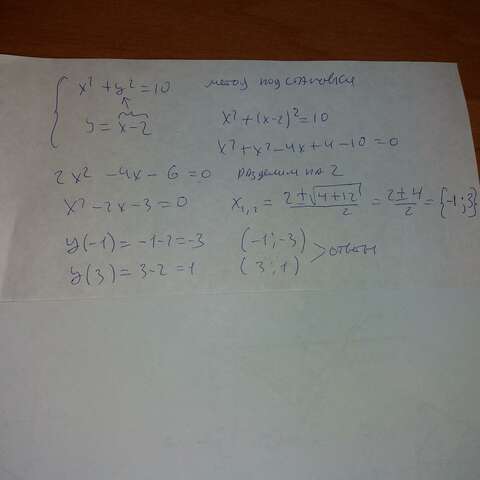 x² + y² = 10 метод подстановки
y = x-2 x² + (x-2)² = 10
x² + x² - 4x + 4 - 10 = 0
2x² - 4x - 6 = 0 разделим на 2
x² - 2x - 3 = 0 x₁,₂ = (2 ± √(4+12))/2 = (2±4)/2 = {-1; 3}
y(-1) = -1-2 = -3 (-1; -3)
y(3) = 3-2 = 1 (3; 1) > ответ